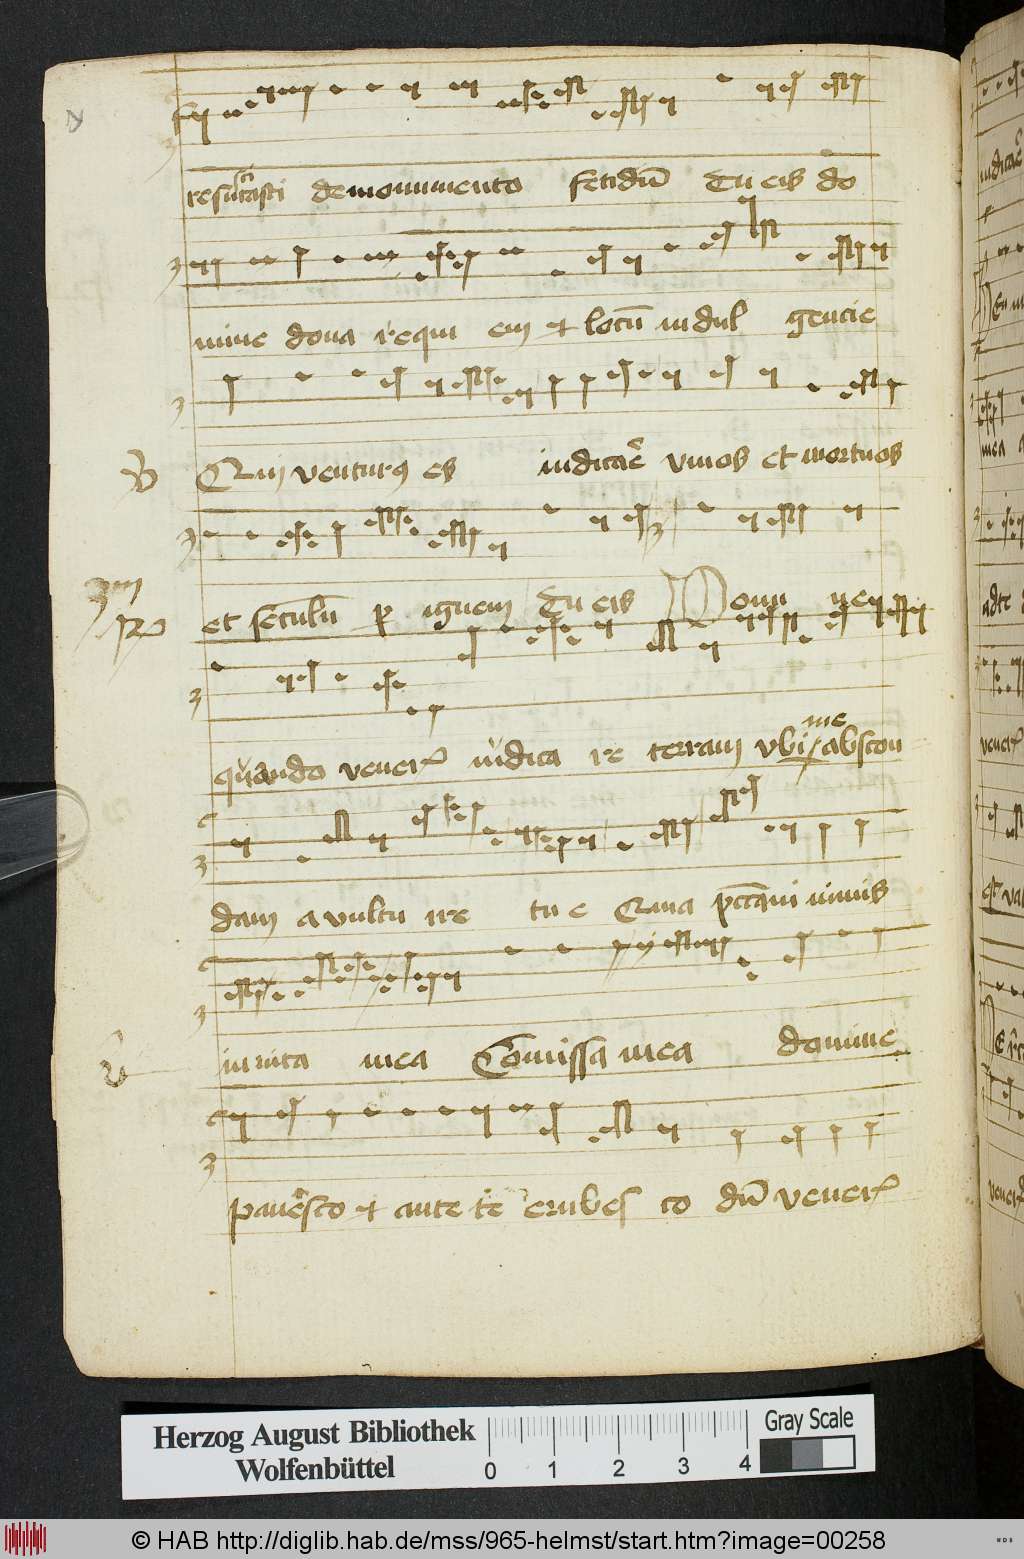 resusitasti de monumento fetidū Tu eis do
mine dona requi em et locū indul gencie
V Qui venturus es iudicare vivos et mortuos
3m R et seculū p ignem Tu eis Domi ne
quando veneris iudica re terram ubi me abscon
dam a vultu ire tu e Quia peccavi nimis
in vita mea Comissa mea domine
pavesco et ante te erubes co dū veneris
Herzog August Bibliothek
Wolfenbüttel
0 1 2 3 4
Gray Scale
© HAB http://diglib.hab.de/mss/965-helmst/start.htm?image=00258